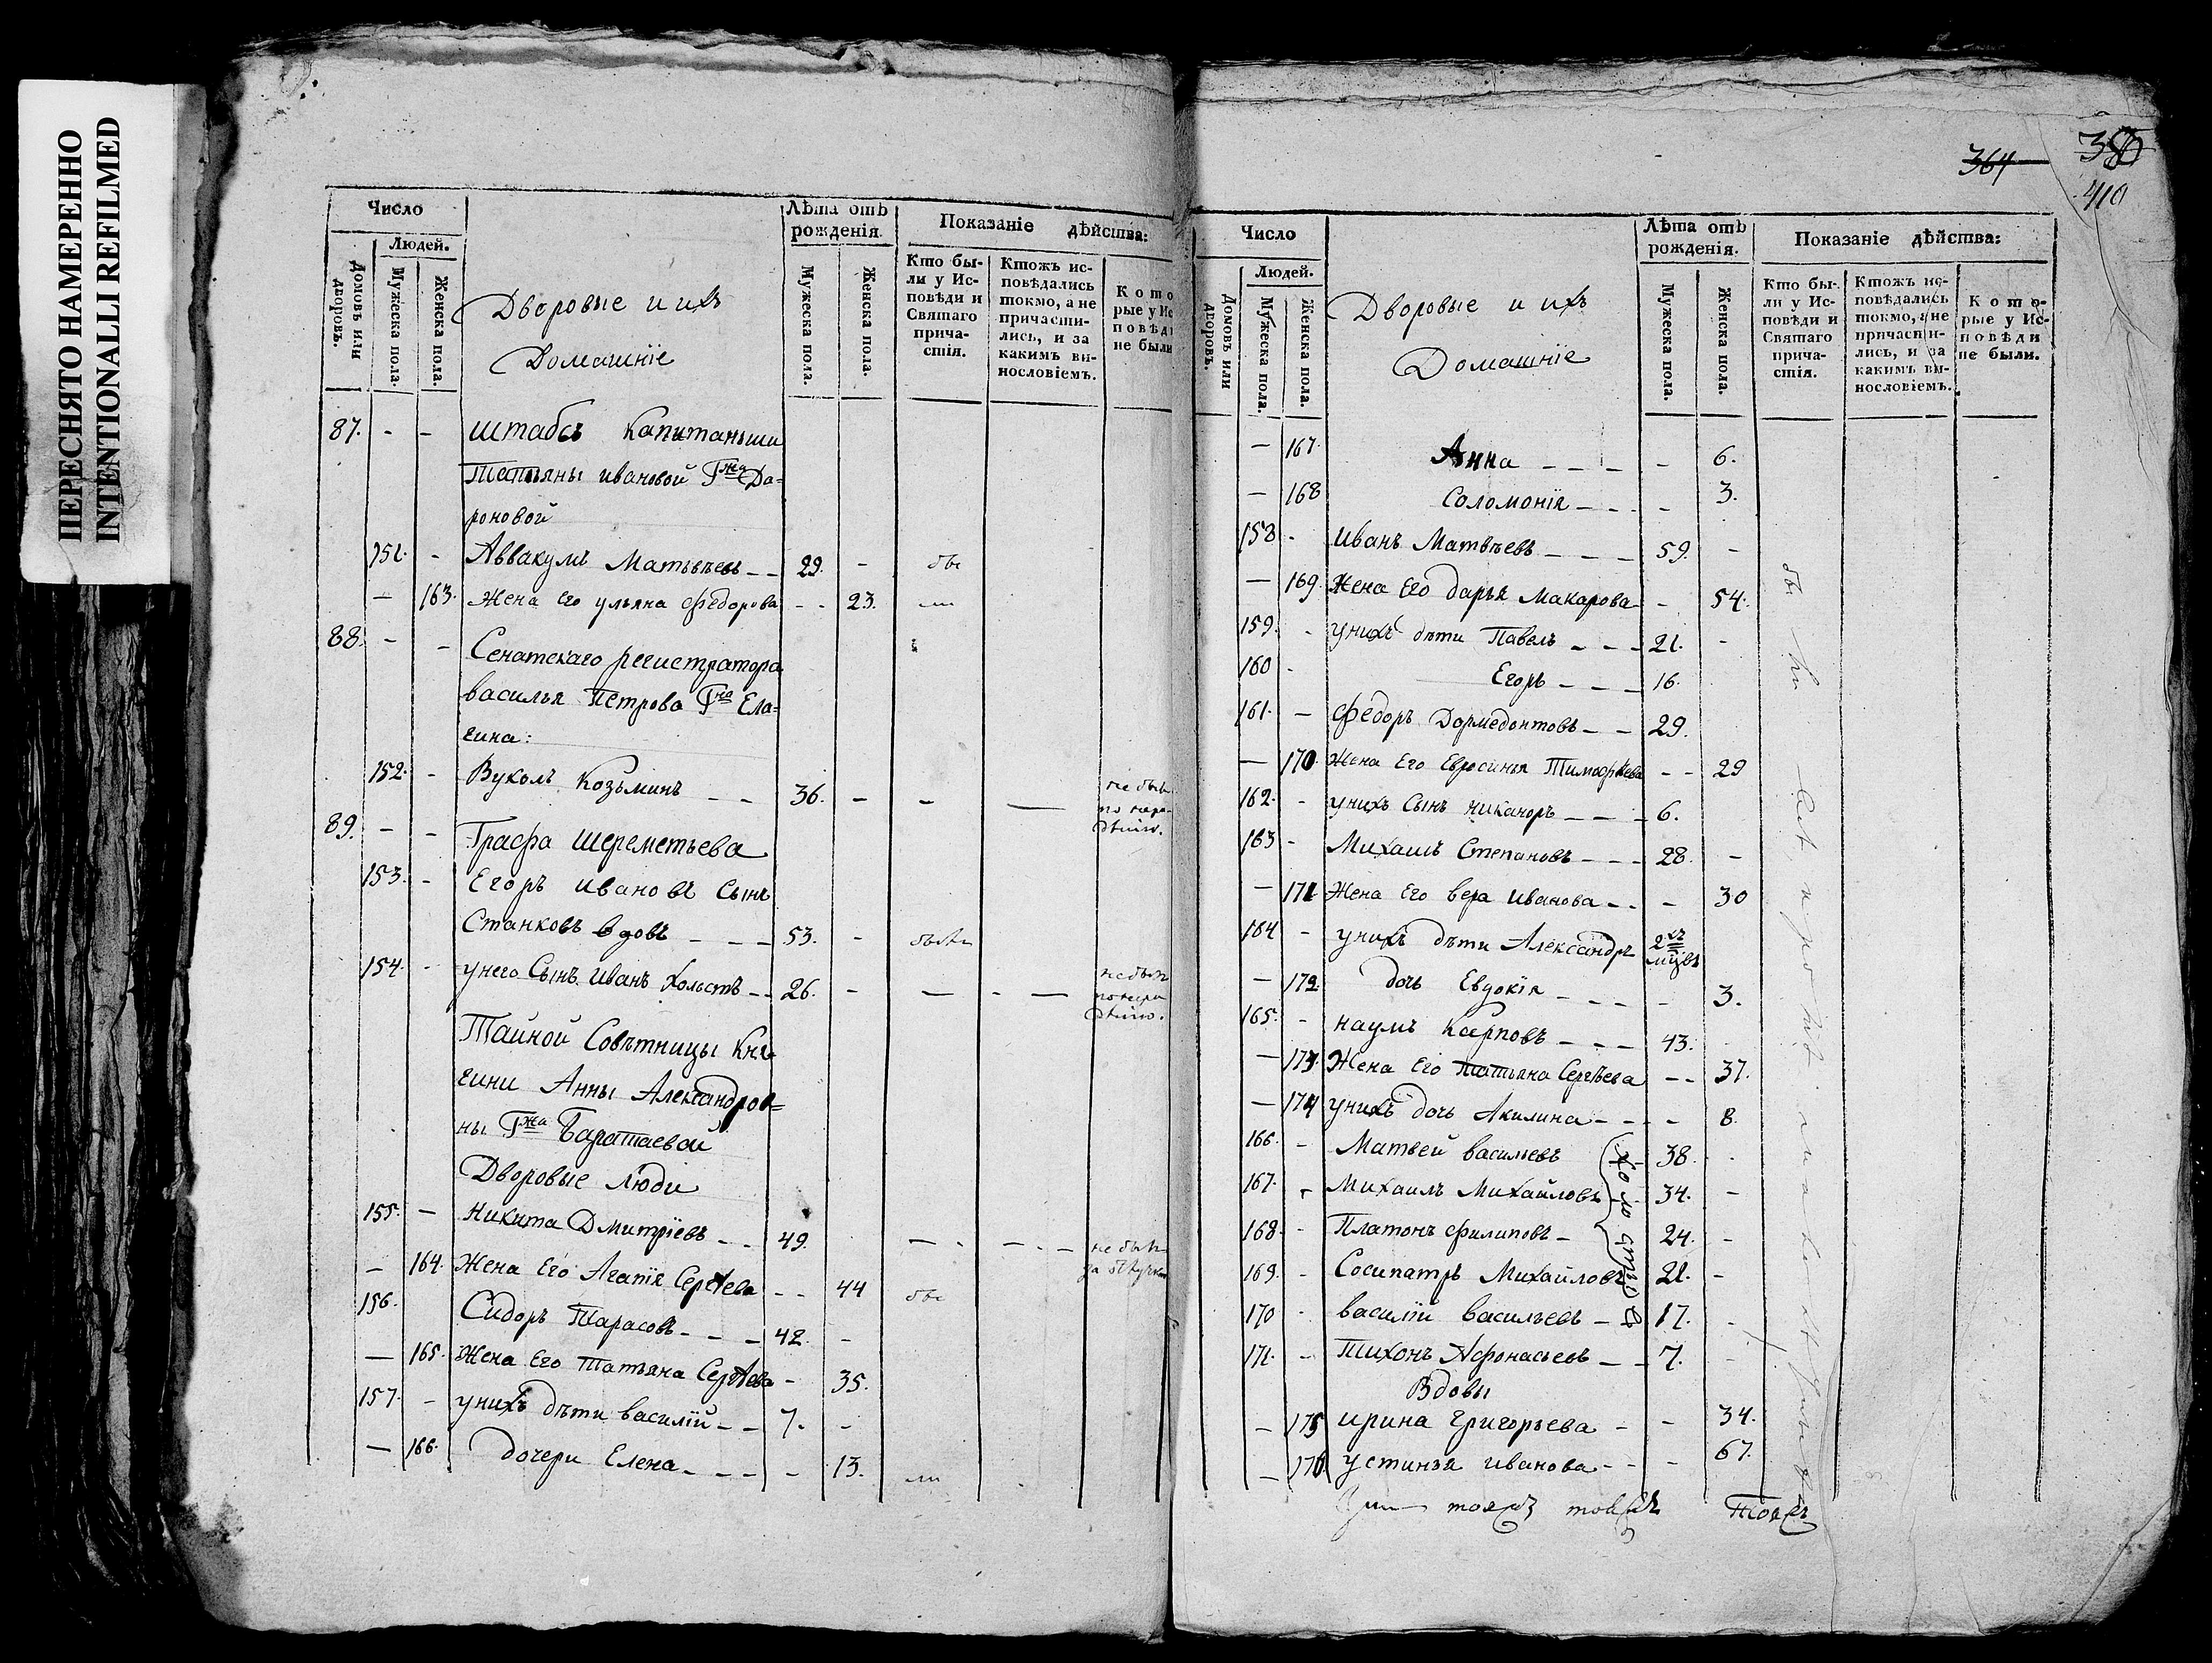 ПЕРЕСНЯТО НАМЕРЕННО
INTENTIONALLI REFILMED
Число
Людей.
Домовъ или дворовъ.
Мужеска пола.
Женска пола.
Дворовые и ихъ
Домашніе
Лѣта отъ рожденія.
Мужеска пола.
Женска пола.
Показаніе дѣйства:
Кто бы-
ли у Ис-
повѣди и
Святаго
прича-
стія.
Ктожъ ис-
повѣдались
токмо, а не
причасти-
лись, и за
какимъ ви-
нословіемъ.
Кото
рые у Ис
повѣди
не были
87. - - штабсъ капитанши
Татьяны ивановой Гжа До=
роновой
151. - Аввакумъ Матвѣевъ - - 29. - бы
- 163. Жена Его ульяна Федорова - - 23. ли
88. - - Сенатскаго регистратора
василья Петрова Гна Ела=
гина:
152. - Вуколъ Козьминъ - - 36. - - - не былъ
по нера-
дѣнію.
89. - - Графа Шереметьева
153. - Егоръ ивановъ сынъ
Станковъ вдовъ - - - 53. - былъ
154. - унего Сынъ Иванъ холостъ - - 26. - - - - не былъ
по нера
дѣнію.
Тайной Совѣтницы Кня
гини Анны Александров=
ны Гжа Баратаевой
Дворовые люди
155. - Никита Дмитріевъ - - 49. - - - - - не былъ
за
- 164. Жена Его Агапія Сергѣева - - 44 бы
156. Сидоръ Тарасовъ - - - 42. -
- 165. Жена Его Татьяна Сергѣева - 35.
157. - унихъ дѣти василій - - 7. -
- 166. дочери Елена - - - - 13. ли
364
380
410
Число
Людей.
Домовъ или дворовъ.
Мужеска пола.
Женска пола.
Дворовые и ихъ
Домашніе
Лѣта отъ рожденія.
Мужеска пола.
Женска пола.
Показаніе дѣйства:
Кто бы-
ли у Ис-
повѣди и
Святаго
прича-
стія.
Ктожъ ис-
повѣдались
токмо, а не
причасти-
лись, и за
какимъ ви-
нословіемъ.
Кото-
рые у Ис-
повѣди
не были.
- 167. Анна - - - - 6.
- 168 Соломонія - - - - 3.
158 - Иванъ Матвѣевъ - - - 59. -
- 169. Жена Его дарья Макарова - - 54.
159. - унихъ дѣти Павелъ - - - 21. -
160 - Егоръ - - - 16.
161. - Федоръ Дормедонтовъ - - 29.
- 170. Жена Его Евросинья Тимофѣева - - 29
162. - унихъ Сынъ никаноръ - - - 6.
163 - Михаилъ Степановъ - - - 28. -
- 171 Жена Его вера Иванова - - - 30
164 - унихъ дѣти Александръ 2хъ
мцвъ
- 172 дочь Евдокія - - - - 3.
165. - наумъ Карповъ - - - 43.
- 173. Жена Его татьяна Сергѣева - - 37.
- 174 унихъ дочь Акилина - - - 8.
166. - Матвей васильевъ 38. -
167. - Михаилъ Михайловъ 34. -
168. - Платонъ филиповъ - 24. -
169. - Сосипатръ Михайловъ 21. -
170 - василій васильевъ - 17. -
171. - Тихонъ Афонасьевъ - - 7. -
холостые
Вдовы
- 175 ирина Григорьева - - 34.
- 176 устинья иванова - - - 67.
бы ли